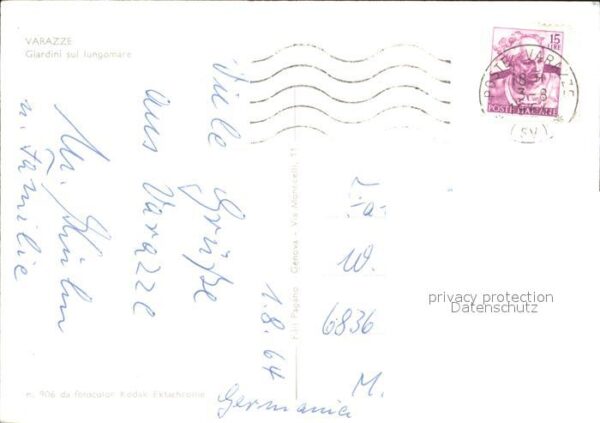 VARAZZE
Giardini sul lungomare
Viele Grüße
aus Varazze
u. Familie
1.8.64
Fa-
W.
6836
M.
Germania
n. 906 da fotocolor Kodak Ektachrome
F.lli Pagano - Genova - Via Monticelli, 11
15
LIRE
POSTE ITALIANE
POSTE VARAZZE
(SV)
privacy protection
Datenschutz